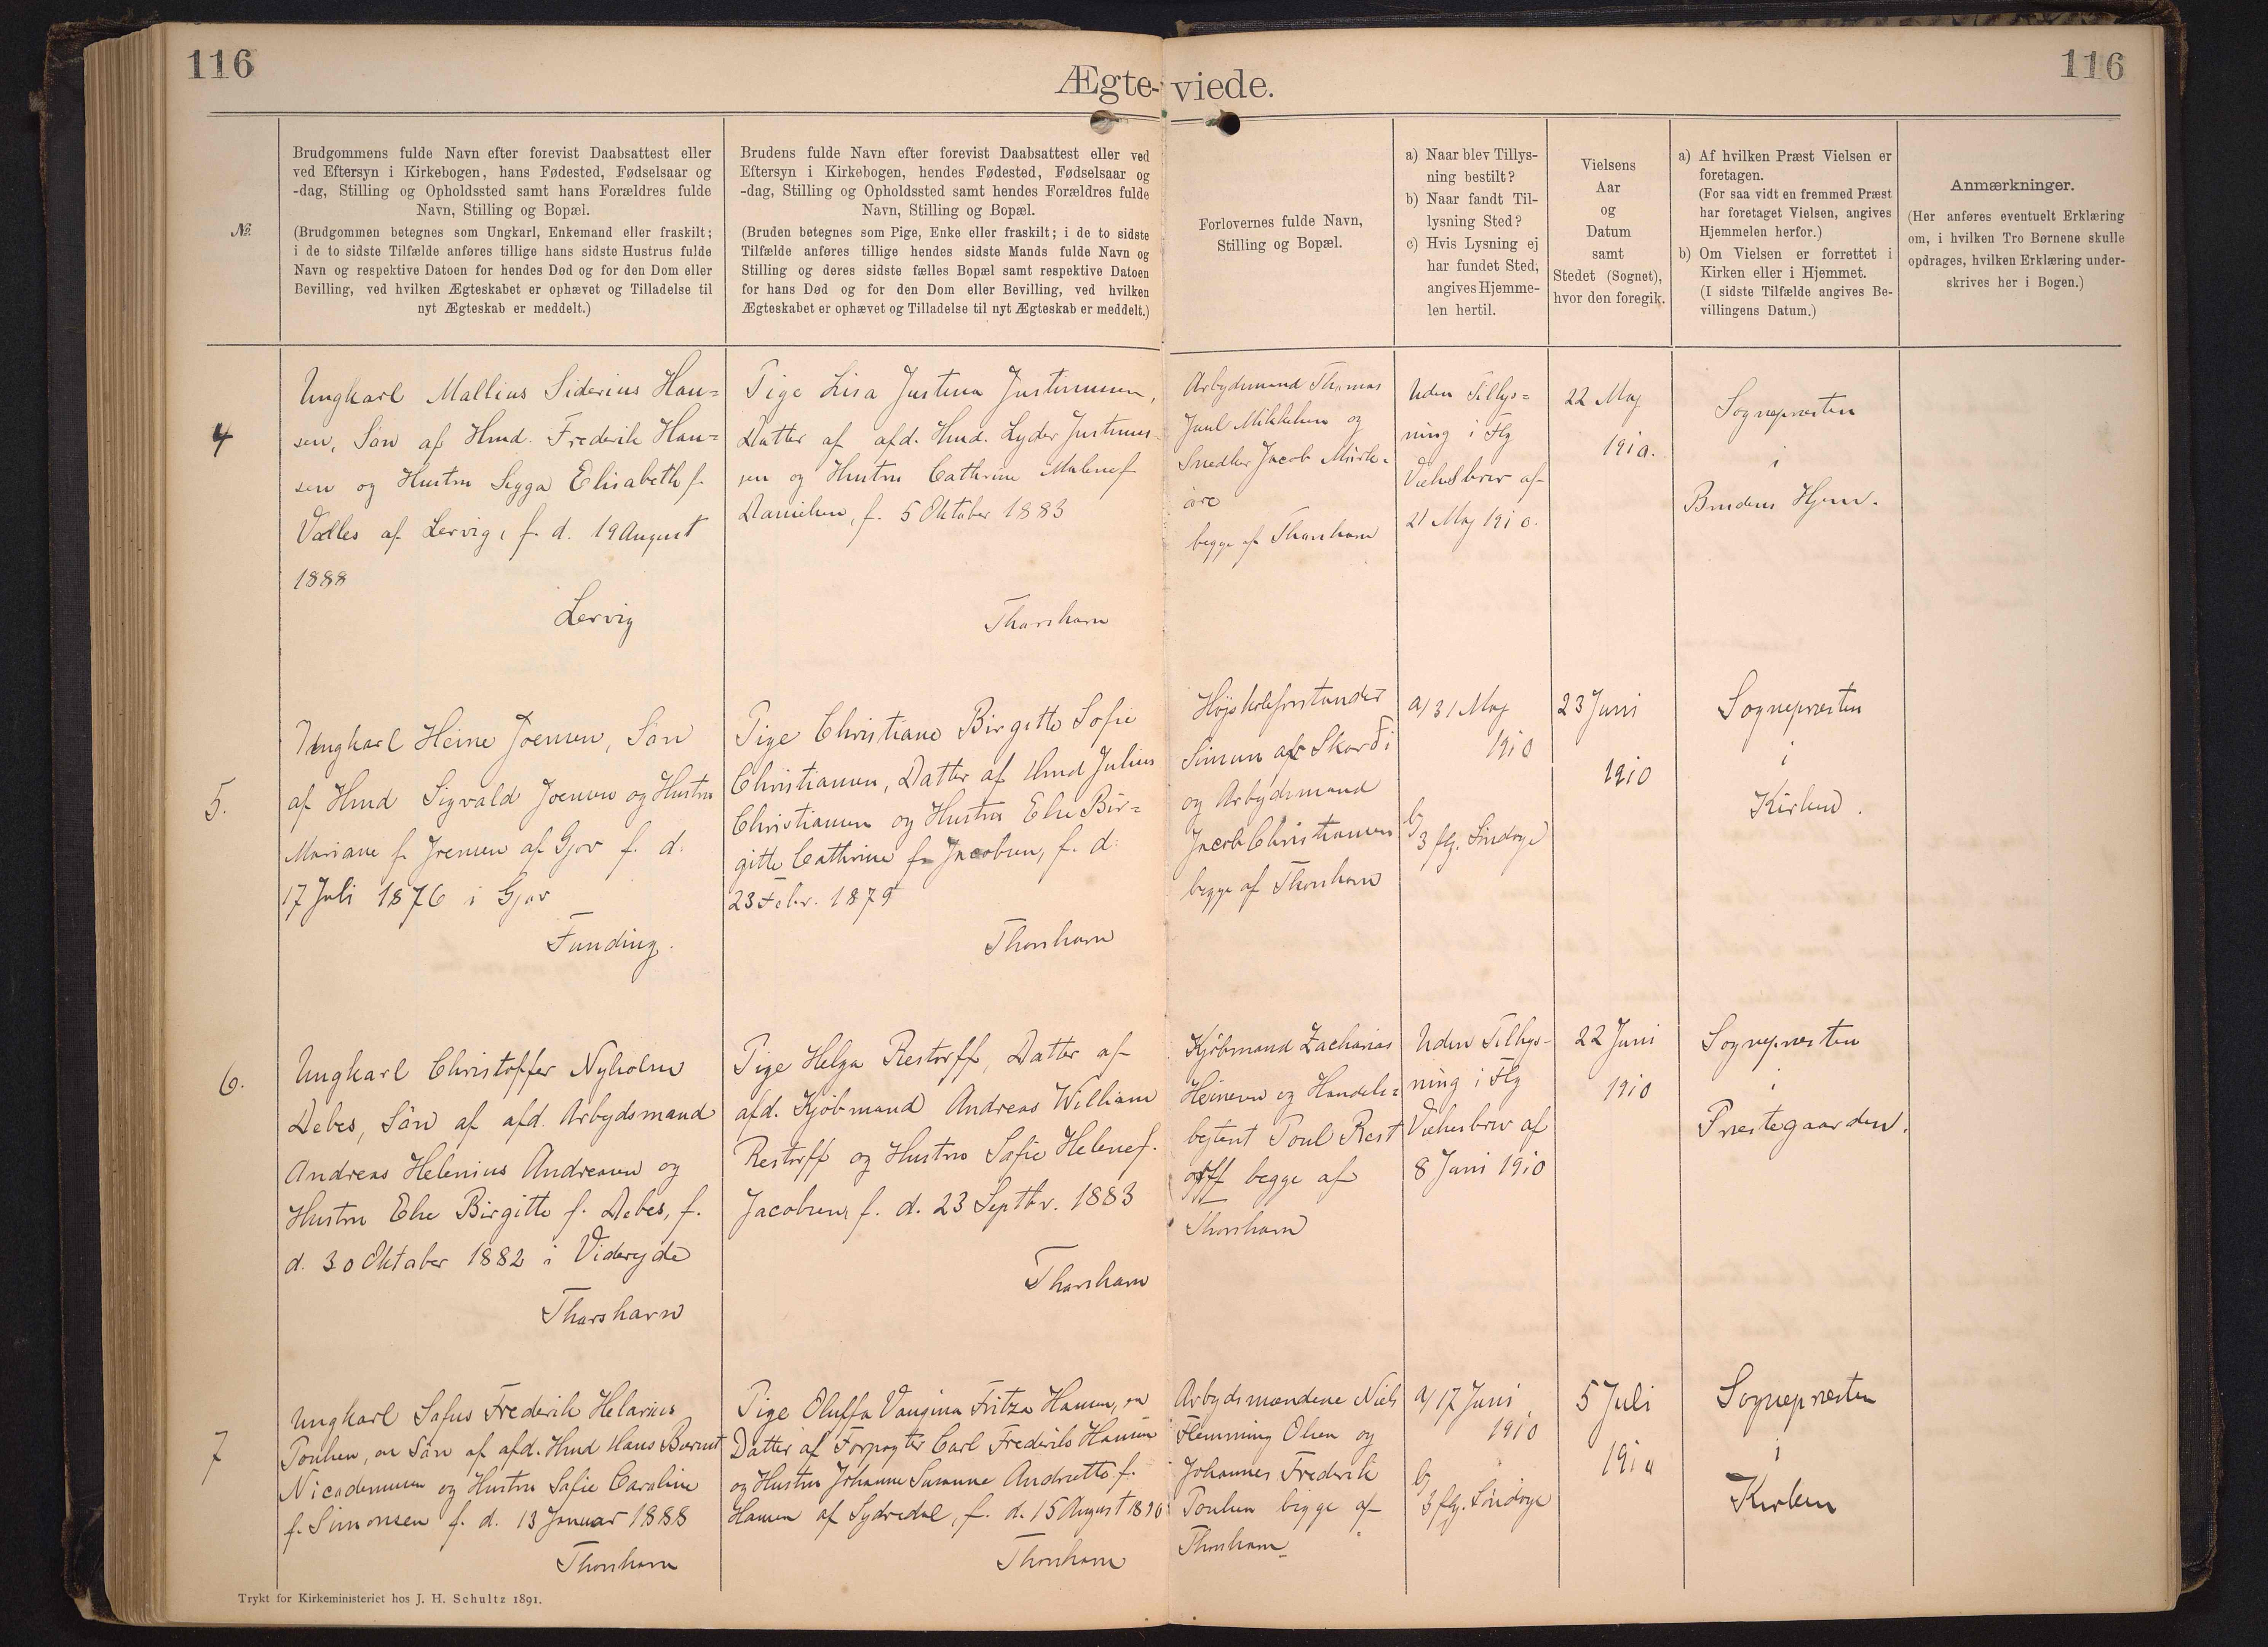 116
116
Ægte-viede.
№.
Brudgommens fulde Navn efter forevist Daabsattest eller
ved Eftersyn i Kirkebogen, hans Fødested, Fødselsaar og
-dag, Stilling og Opholdssted samt hans Forældres fulde
Navn, Stilling og Bopæl.
(Brudgommen betegnes som Ungkarl, Enkemand eller fraskilt;
i de to sidste Tilfælde anføres tillige hans sidste Hustrus fulde
Navn og respektive Datoen for hendes Død og for den Dom eller
Bevilling, ved hvilken Ægteskabet er ophævet og Tilladelse til
nyt Ægteskab er meddelt.)
Brudens fulde Navn efter forevist Daabsattest eller ved
Eftersyn i Kirkebogen, hendes Fødested, Fødselsaar og
-dag, Stilling og Opholdssted samt hendes Forældres fulde
Navn, Stilling og Bopæl.
(Bruden betegnes som Pige, Enke eller fraskilt; i de to sidste
Tilfælde anføres tillige hendes sidste Mands fulde Navn og
Stilling og deres sidste fælles Bopæl samt respektive Datoen
for hans Død og for den Dom eller Bevilling, ved hvilken
Ægteskabet er ophævet og Tilladelse til nyt Ægteskab er meddelt.)
Forlovernes fulde Navn,
Stilling og Bopæl.
a) Naar blev Tillys-
ning bestilt?
b) Naar fandt Til-
lysning Sted?
c) Hvis Lysning ej
har fundet Sted,
angives Hjemme-
len hertil.
Vielsens
Aar
og
Datum
samt
Stedet (Sognet),
hvor den foregik.
a) Af hvilken Præst Vielsen er
foretagen.
(For saa vidt en fremmed Præst
har foretaget Vielsen, angives
Hjemmelen herfor.)
b) Om Vielsen er forrettet i
Kirken eller i Hjemmet.
(I sidste Tilfælde angives Be-
villingens Datum.)
Anmærkninger.
(Her anføres eventuelt Erklæring
om, i hvilken Tro Børnene skulle
opdrages, hvilken Erklæring under-
skrives her i Bogen.)
4
Ungkarl Mallius Siderius Han=
sen, Søn af Hmd. Frederik Han=
sen og Hustru Sigga Elisabeth f.
Valles af Lervig, f. d. 19 August
1888
Lervig
Pige Lisa Justina Justinussen,
Datter af afd. Hmd. Lyder Justinus-
sen og Hustru Cathrine Malene f.
Danielsen, f. 5 Oktober 1883
Thorshavn
Arbejdsmand Thomas
Juul Mikkelsen og
Snedker Jacob Mørk=
øre
begge af Thorshavn
Uden Tillys=
ning i Flg
Vielsesbrev af
21 Maj 1910.
22 Maj
1910.
Sognepræsten
i
Brudens Hjem.
5.
Ungkarl Heine Joensen, Søn
af Hmd Sigvald Joensen og Hustru
Mariane f. Joensen af Gjov f. d.
17 Juli 1876 i Gjov
Funding.
Pige Christiane Birgitte Sofie
Christiansen, Datter af Hmd Julius
Christiansen og Hustru Else Bir=
gitte Cathrine f. Jacobsen, f. d.
23 Febr. 1879
Thorshavn
Højskoleforstander
Simun af Skarði
og Arbejdsmand
Jacob Christiansen
begge af Thorshavn
a) 31 Maj
1910
b)
3 flg. Søndage
23 Juni
1910
Sognepræsten
i
Kirken.
6.
Ungkarl Christoffer Nyholm
Debes, Søn af afd. Arbejdsmand
Andreas Helenius Andreasen og
Hustru Else Birgitte f. Debes, f.
d. 30 Oktober 1882 i Viderejde
Thorshavn
Pige Helga Restorff, Datter af
afd. Kjøbmand Andreas William
Restorff og Hustru Sofie Helene f.
Jacobsen, f. d. 23 Septbr. 1883
Thorshavn
Kjøbmand Zacharias
Heinesen og Handels=
betjent Poul Rest
orff begge af
Thorshavn
Uden Tillys-
ning i Flg
Vielsesbrev af
8 Juni 1910
22 Juni
1910
Sognepræsten
i
Præstegaarden.
7
Ungkarl Sofus Frederik Helarius
Poulsen, en Søn af afd. Hmd Hans Berent
Nicodemusen og Hustru Sofie Caroline
f. Simonsen f. d. 13 Januar 1888
Thorshavn
Pige Oluffa Vaugina Fritza Hansen, en
Datter af Forpagter Carl Frederik Hansen
og Hustru Johanne Susanne Andrietta f.
Hansen af Sydredal, f. d. 15 August 1890
Thorshavn
Arbejdsmændene Niels
Flemming Olsen og
Johannes Frederik
Poulsen begge af
Thorshavn
a) 17 Juni
1910
b)
3 flg. Søndage
5 Juli
1910
Sognepræsten
i
Kirken
Trykt for Kirkeministeriet hos J. H. Schultz 1891.